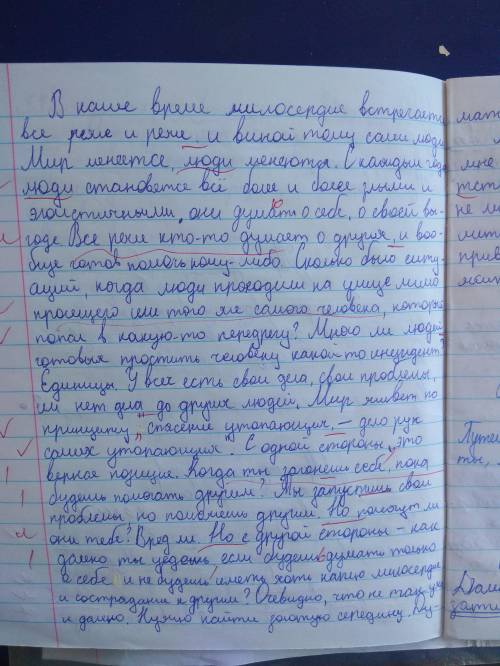 В наше время милосердие встречается
все реже и реже, и виной тому сами люди.
Мир меняется, люди меняются. С каждым годом
люди становятся всё более и более злыми и
эгоистичными, они думают о себе, о своей вы-
годе. Все реже кто-то думает о других, и воо-
бще готов помочь кому-либо. Сколько было ситу-
аций, когда люди проходили на улице мимо
просящего или того же самого человека, который
попал в какую-то передрягу? Много ли людей
готовых простить человеку какой-то инцидент?
Единицы. У всех есть свои дела, свои проблемы,
им нет дела до других людей. Мир живет по
принципу „спасение утопающих – дело рук
самих утопающих". С одной стороны, это
верная позиция. Когда ты
будешь помогать другим? Ты запустишь свои
проблемы, но поможешь другим. Но помогут ли
они тебе? Вряд ли. Но с другой стороны – как
далеко ты уедешь, если будешь думать только
о себе и не будешь иметь хоть каплю милосердия
и сострадания к другим? Очевидно, что не так уж
и далеко. Нужно найти золотую середину.
мат
мне
тст
не ли
мит
прив
Путе
ты,
Дали
зати